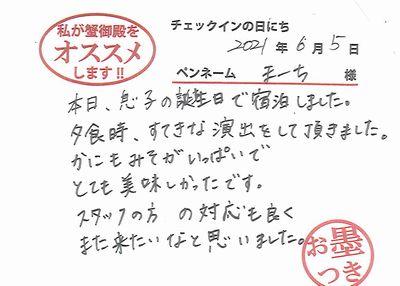 私が蟹御殿を
オススメ
します!!
チェックインの日にち
2021年6月5日
ペンネーム まーち 様
本日、息子の誕生日で宿泊しました。
夕食時、すてきな演出をして頂きました。
かにもみそがいっぱいで
とても美味しかったです。
スタッフの方 の対応も良く
また来たいなと思いました。
お墨
つき